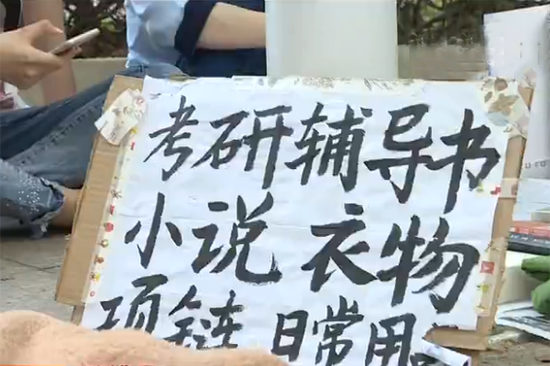 考研辅导书
小说 衣物
项链 日常用